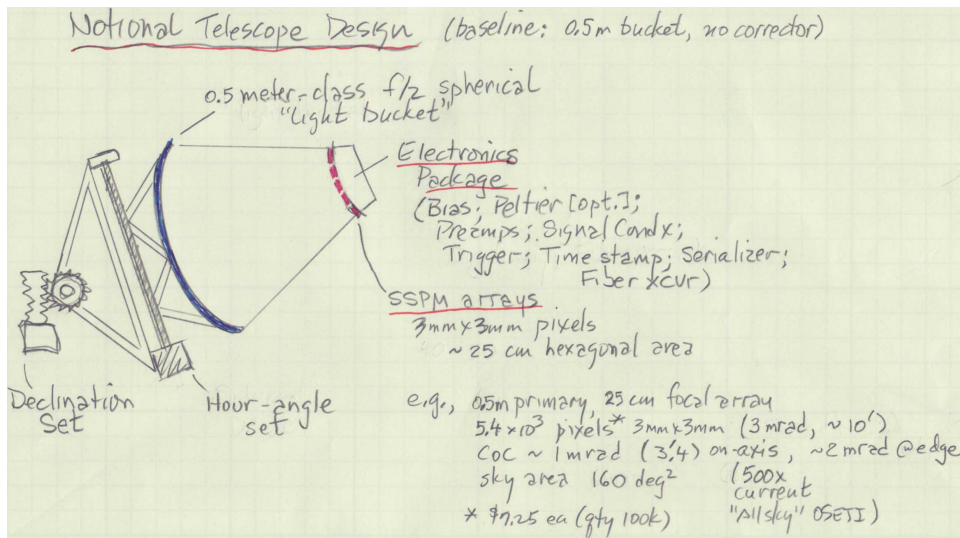 Notional Telescope Design (baseline: 0.5m bucket, no corrector)
0.5 meter-class f/2 spherical
"light bucket"
Electronics
Package
(Bias; Peltier [opt.];
Preamps; Signal Condx;
Trigger; Time stamp; Serializer;
Fiber xcvr)
SSPM arrays
3mm x 3mm pixels
~ 25 cm hexagonal area
Declination
Set
Hour-angle
set
e.g., 0.5m primary, 25 cm focal array
5.4 x 10³ pixels* 3mm x 3mm (3 mrad, ~ 10')
CoC ~ 1 mrad (3'.4) on-axis, ~2 mrad @ edge
sky area 160 deg² (500x
current
"Allsky" OSETI)
* $7.25 ea (qty 100k)